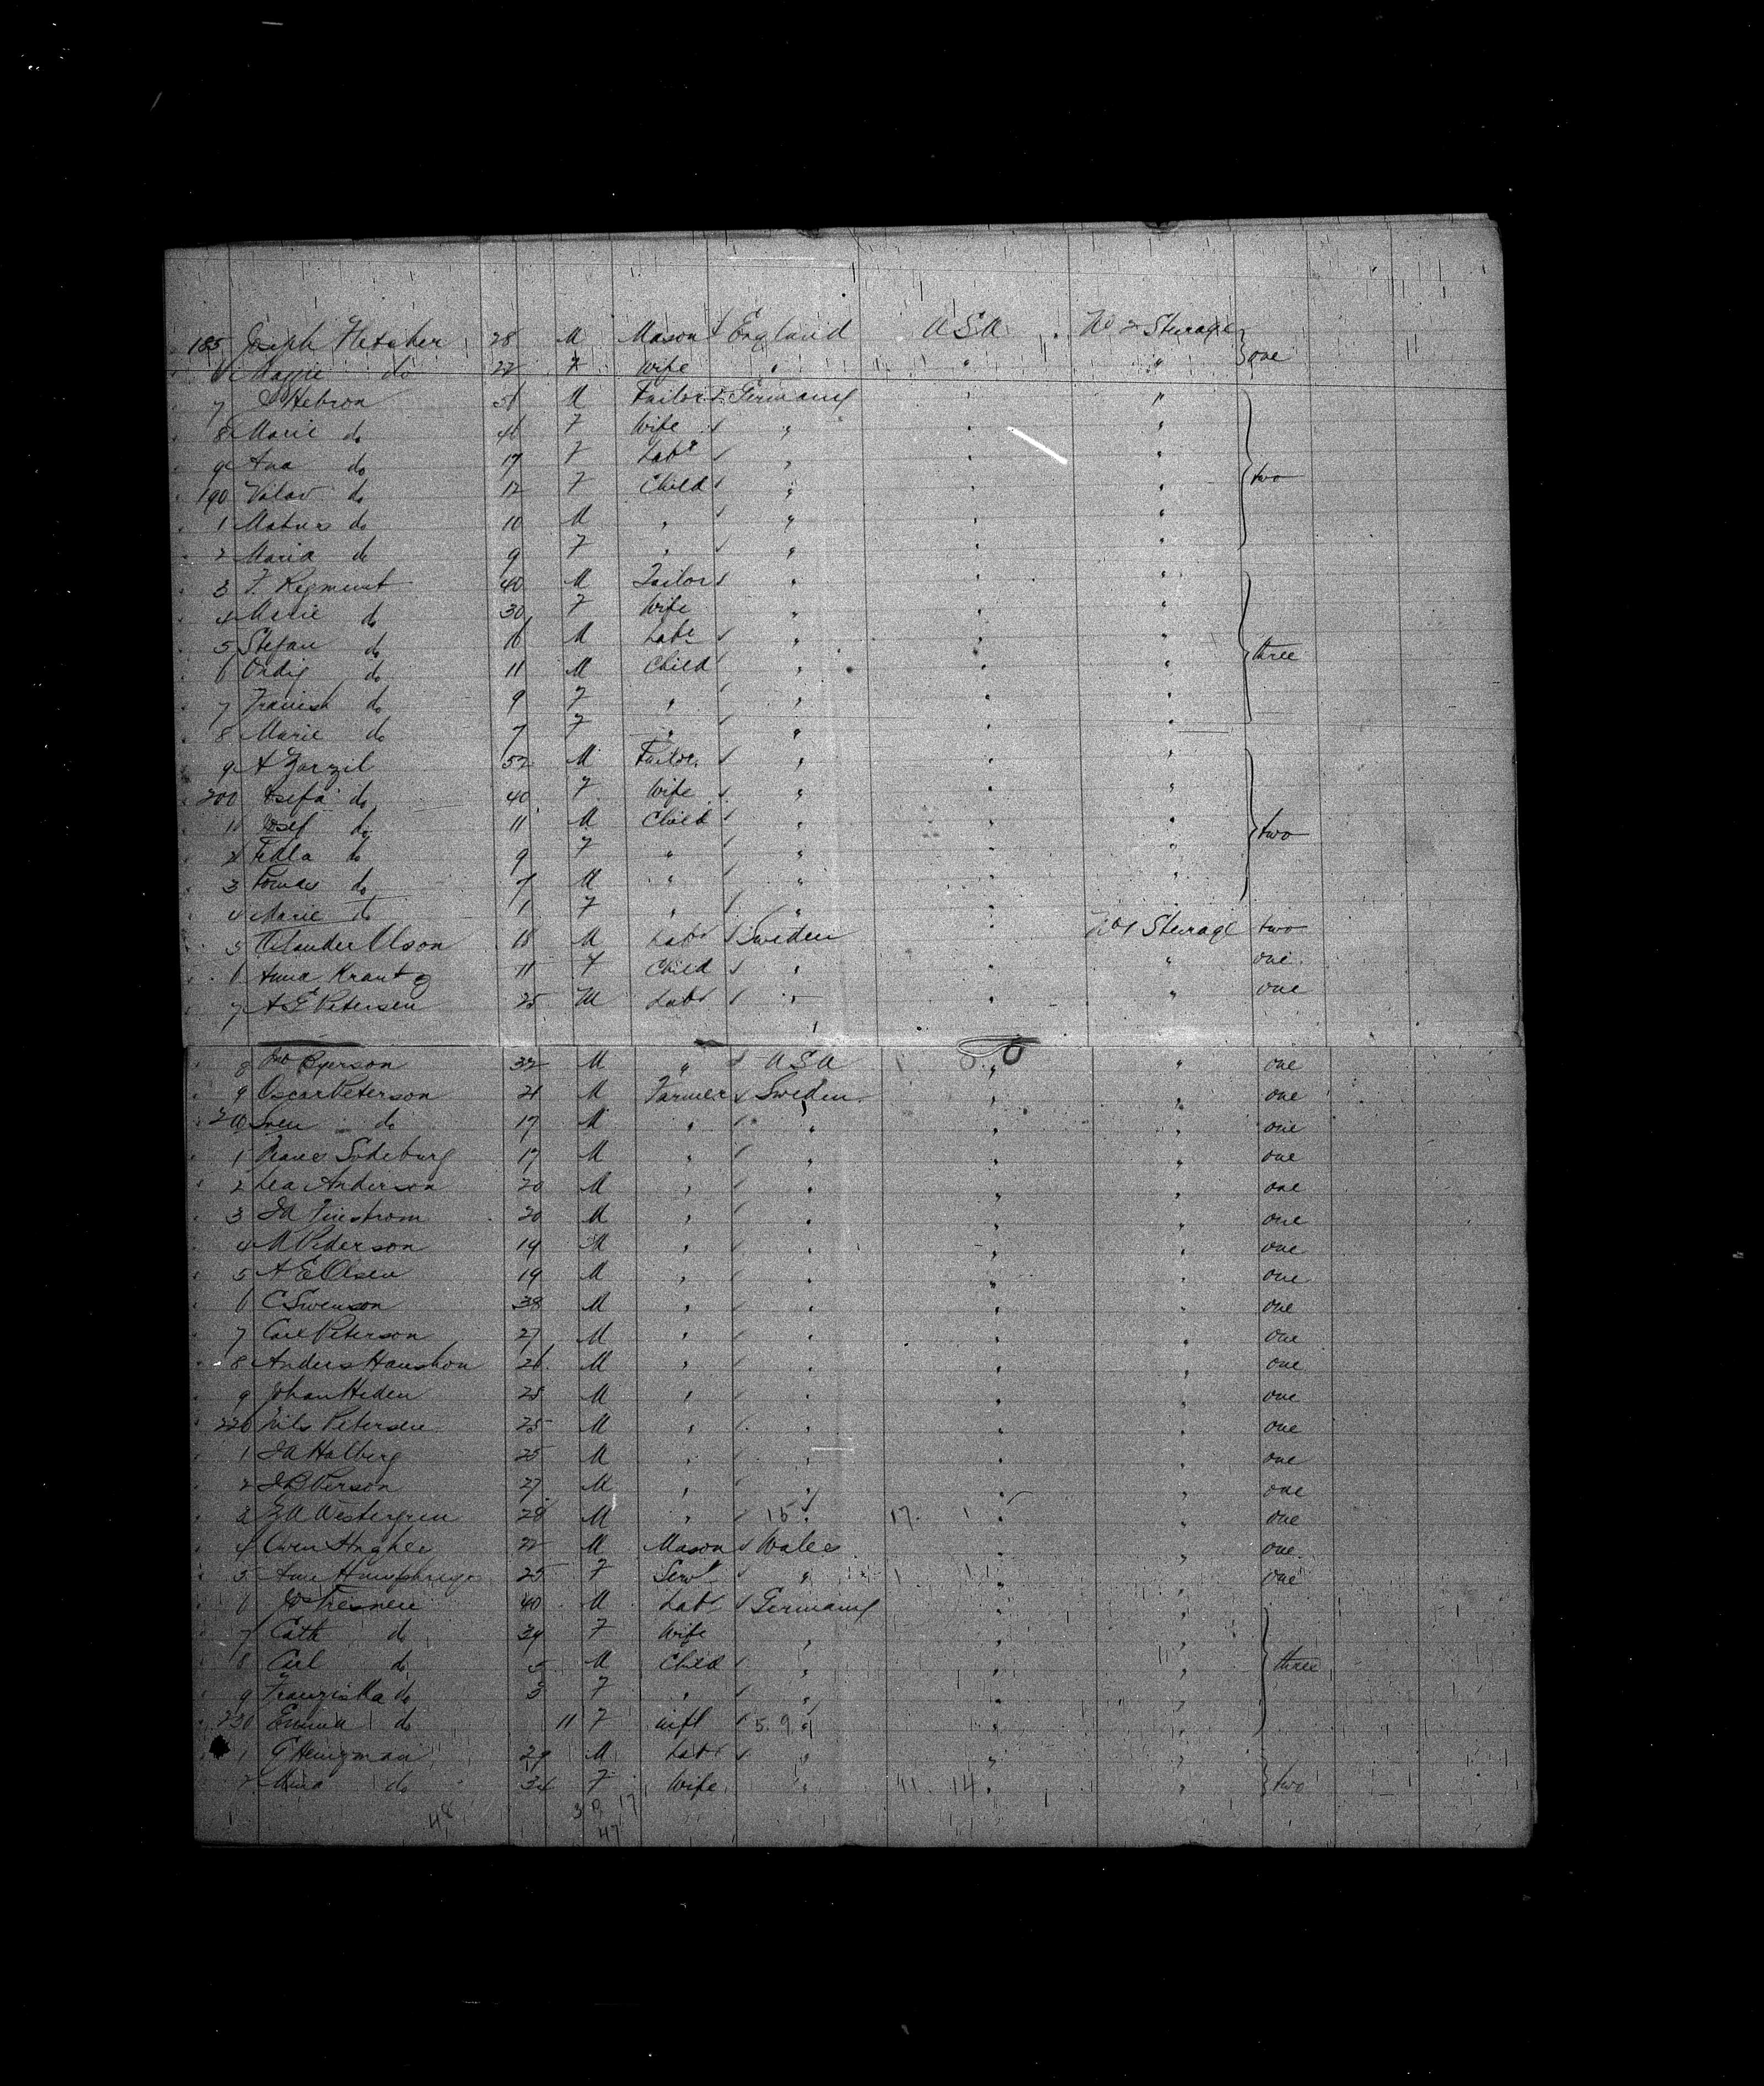 185 Joseph Fletcher 28 M Mason England USA No 2 Steerage one
6 Maggie do 22 F Wife " " "
7 Hebron 51 M Tailor Germany " "
8 Marie do 41 F Wife " " "
9 Ana do 17 F Labr " " "
190 do 12 F Child " " " two
1 do 10 M " " " "
2 Maria do 9 F " " " "
3 F. Regment 40 M Tailor " " "
4 Marie do 30 F Wife " " "
5 Stefan do 16 M Labr " " "
6 do 11 M Child " " " three
7 do 9 F " " " "
8 Marie do 7 F " " " "
9 A 52 M Tailor " " "
200 Josefa do 40 F Wife " " "
1 Josef do 11 M Child " " " two
2 do 9 F " " " "
3 Tomas do 7 M " " " "
4 Marie do 1 F " " "
5 Olson 18 M Labr Sweden " No 1 Steerage two
6 Anna Krantz 11 F Child " " " one
7 A E Petersen 25 M Labr " " " one
8 32 M " USA " " one
9 Oscar Peterson 21 M Farmer Sweden " " one
210 Sven do 17 M " " " " one
1 Sodeburg 17 M " " " " one
2 Anderson 20 M " " " " one
3 20 M " " " " one
4 M Pederson 19 M " " " " one
5 A E Olsen 19 M " " " " one
6 C Swenson 38 M " " " " one
7 Carl Peterson 27 M " " " " one
8 Anders 26 M " " " " one
9 Johan Heden 25 M " " " " one
220 Nils Petersen 25 M " " " " one
1 J A Halberg 25 M " " " " one
2 J B Person 27 M " " " " one
3 Westergren 28 M " " 15 17 1 " " one
4 Owen Hughes 22 M Mason Wales " " one
5 Ann Humphreys 25 F Servt " " " one
6 40 M Labr Germany " "
7 Cath do 34 F Wife " " "
8 Carl do 5 M Child " " " three
9 Franziska do 3 F " " " "
230 Emma do 11 F inft 5.9 " " "
1 G Heinzman 29 M Labr " " "
2 do 34 F Wife " 11 14 " " two
48 17
47